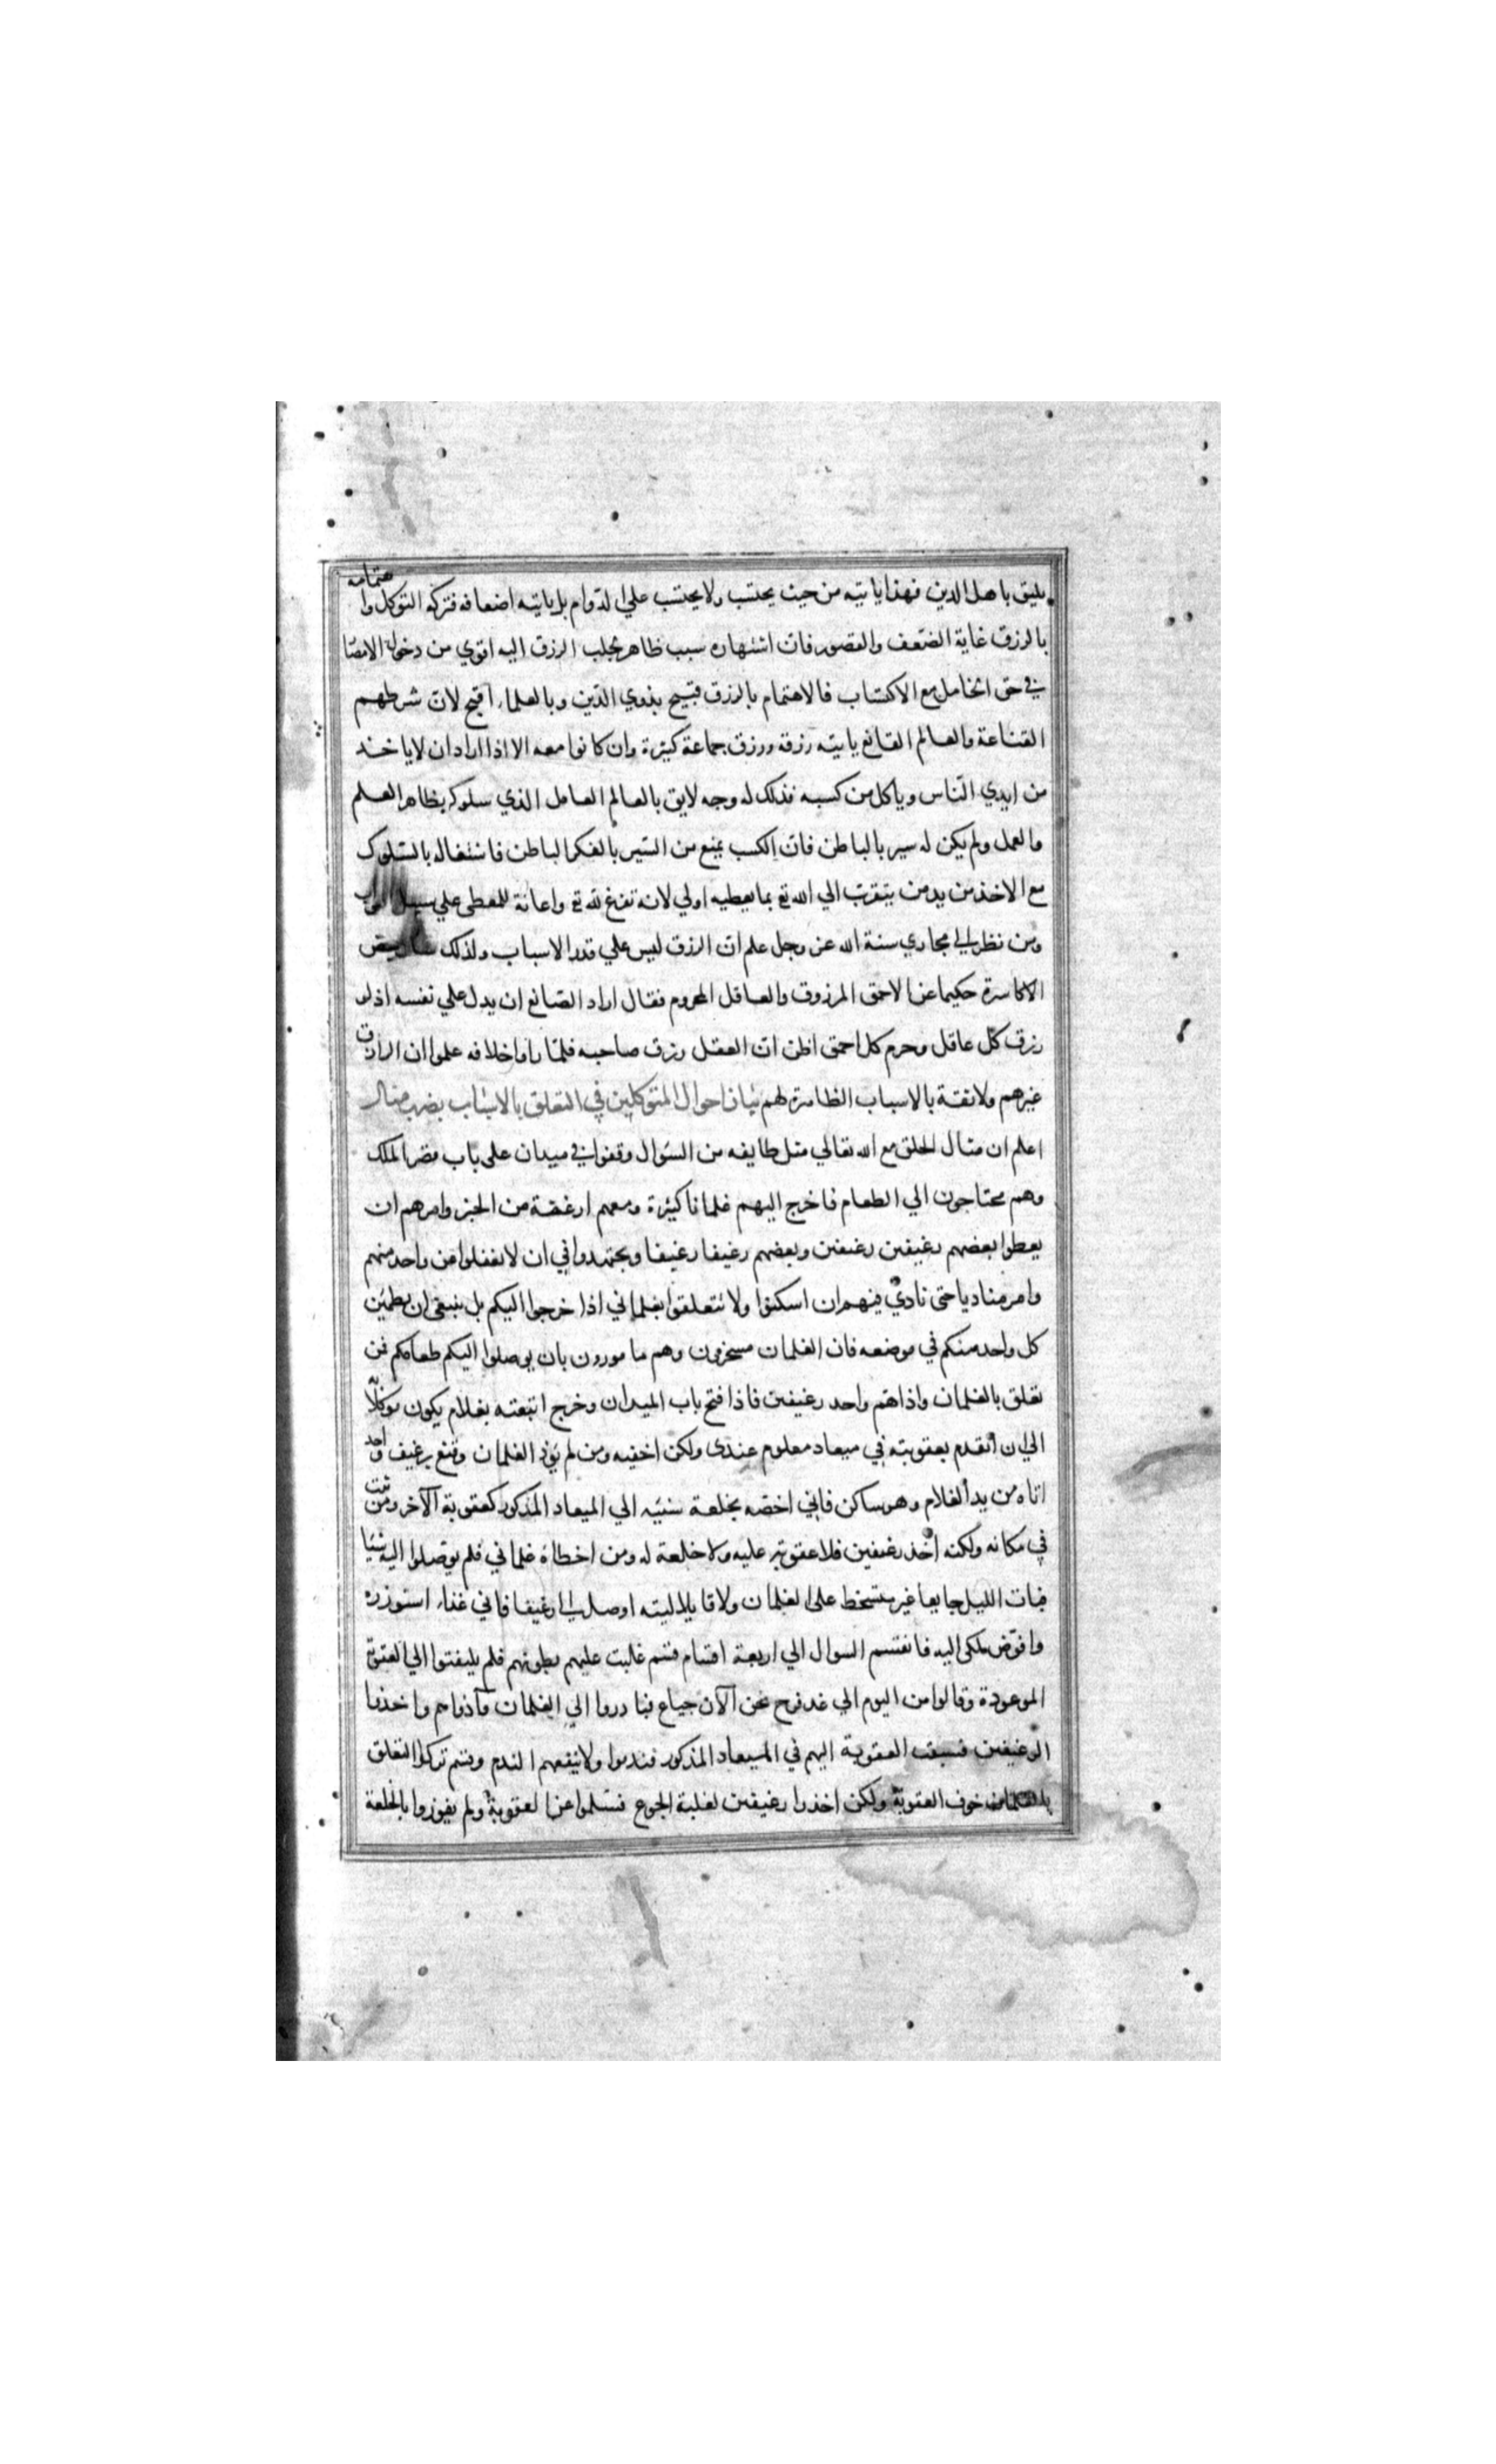 يليق باهل الدين فهذا ياتيه من حيث يحتسب ولا يحتسب على الدوام بل ياتيه اضعافه فتركه التوكل واهتمامه
بالرزق غاية الضعف والقصور فان اشتهاره سبب ظاهر يجلب الرزق اليه اقوي من دخول الامصا
في حق الخامل مع الاكتساب فالاهتمام بالرزق قبيح بذوي الدين وبالعلماء اقبح لان شرطهم
القناعة والعالم القانع ياتيه رزقه ورزق جماعة كثيرة وان كانوا معه الا اذا اراد ان لا ياخذ
من ايدي الناس وياكل من كسبه فذلك له وجه لايق بالعالم العامل الذي سلوكه بظاهر العلم
والعمل ولم يكن له سير بالباطن فان الكسب يمنع من السير بالفكر الباطن فاشتغاله بالسلوك
مع الاخذ من يد من يتقرب الي الله تع بما يعطيه اولي لانه تفرغ لله تع واعانة للمعطي علي نيل الثواب
ومن نظر الي مجاري سنة الله عز وجل علم ان الرزق ليس علي قدر الاسباب ولذلك سال بعض
الاكاسرة حكيما عن الاحمق المرزوق والعاقل المحروم فقال اراد الصانع ان يدل علي نفسه اذ لو
رزق كل عاقل وحرم كل احمق لظن ان العقل رزق صاحبه فلما راوا خلافه علموا ان الرازق
غيرهم ولا ثقة بالاسباب الظاهرة لهم بيان احوال المتوكلين في التعلق بالاسباب بضرب مثال
اعلم ان مثال الخلق مع الله تعالي مثل طايفه من السؤال وقفوا في ميدان على باب قصر الملك
وهم محتاجون الي الطعام فاخرج اليهم غلمانا كثيرة ومعهم ارغفة من الخبز وامرهم ان
يعطوا بعضهم رغيفين رغيفين وبعضهم رغيفا رغيفا ويجتهدوا في ان لا يغفلوا عن واحد منهم
وامر مناديا حتى نادي فيهم ان اسكنوا ولا تتعلقوا بغلماني اذا خرجوا اليكم بل ينبغي ان يطمئن
كل واحد منكم في موضعه فان الغلمان مسخرون وهم مامورون بان يوصلوا اليكم طعامكم فمن
تعلق بالغلمان واذاهم واخذ رغيفين فاذا فتح باب الميدان وخرج اتبعته بغلام يكون موكلا
الي ان اتقدم بعقوبته في ميعاد معلوم عندى ولكن اخفيه ومن لم يؤذ الغلمان وقنع برغيف واحد
اتاه من يد الغلام وهو ساكن فاني اخصه بخلعة سنيه الي الميعاد المذكور لعقوبة الآخر ومن ثبت
في مكانه ولكنه اخذ رغيفين فلا عقوبة عليه ولا خلعة له ومن اخطاه غلماني فلم يوصلوا اليه شيا
فبات الليل جايعا غير متسخط على الغلمان ولا قايلا ليته اوصل الي رغيفا فاني غدا استوزره
وافوض ملكى اليه فانقسم السوال الي اربعة اقسام قسم غلبت عليهم بطونهم فلم يلتفتوا الي العقوبة
الموعودة وقالوا من اليوم الي غد فرج نحن الآن جياع فبادروا الي الغلمان فآذوهم واخذوا
الرغيفين فسبقت العقوبة اليهم في الميعاد المذكور فندموا ولا ينفعهم الندم وقسم تركوا التعلق
بالغلمان خوف العقوبة ولكن اخذوا رغيفين لغلبة الجوع فسلموا عن العقوبة ولم يفوزوا بالخلعة